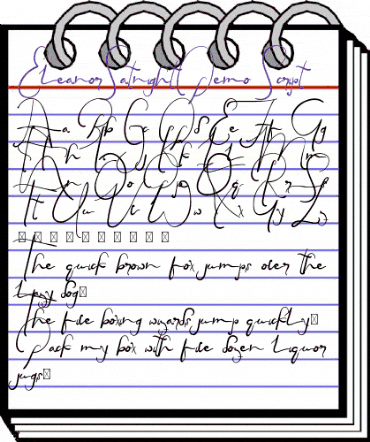 Eleanor Satnight Demo Script
Aa Bb Cc Dd Ee Ff Gg
Hh Ii Jj Kk Ll Mm
Nn Oo Pp Qq Rr Ss
Tt Uu Vv Ww Xx Yy Zz
The quick brown fox jumps over the
Lazy dog
The five boxing wizards jump quickly
Pack my box with five dozen liquor
jugs